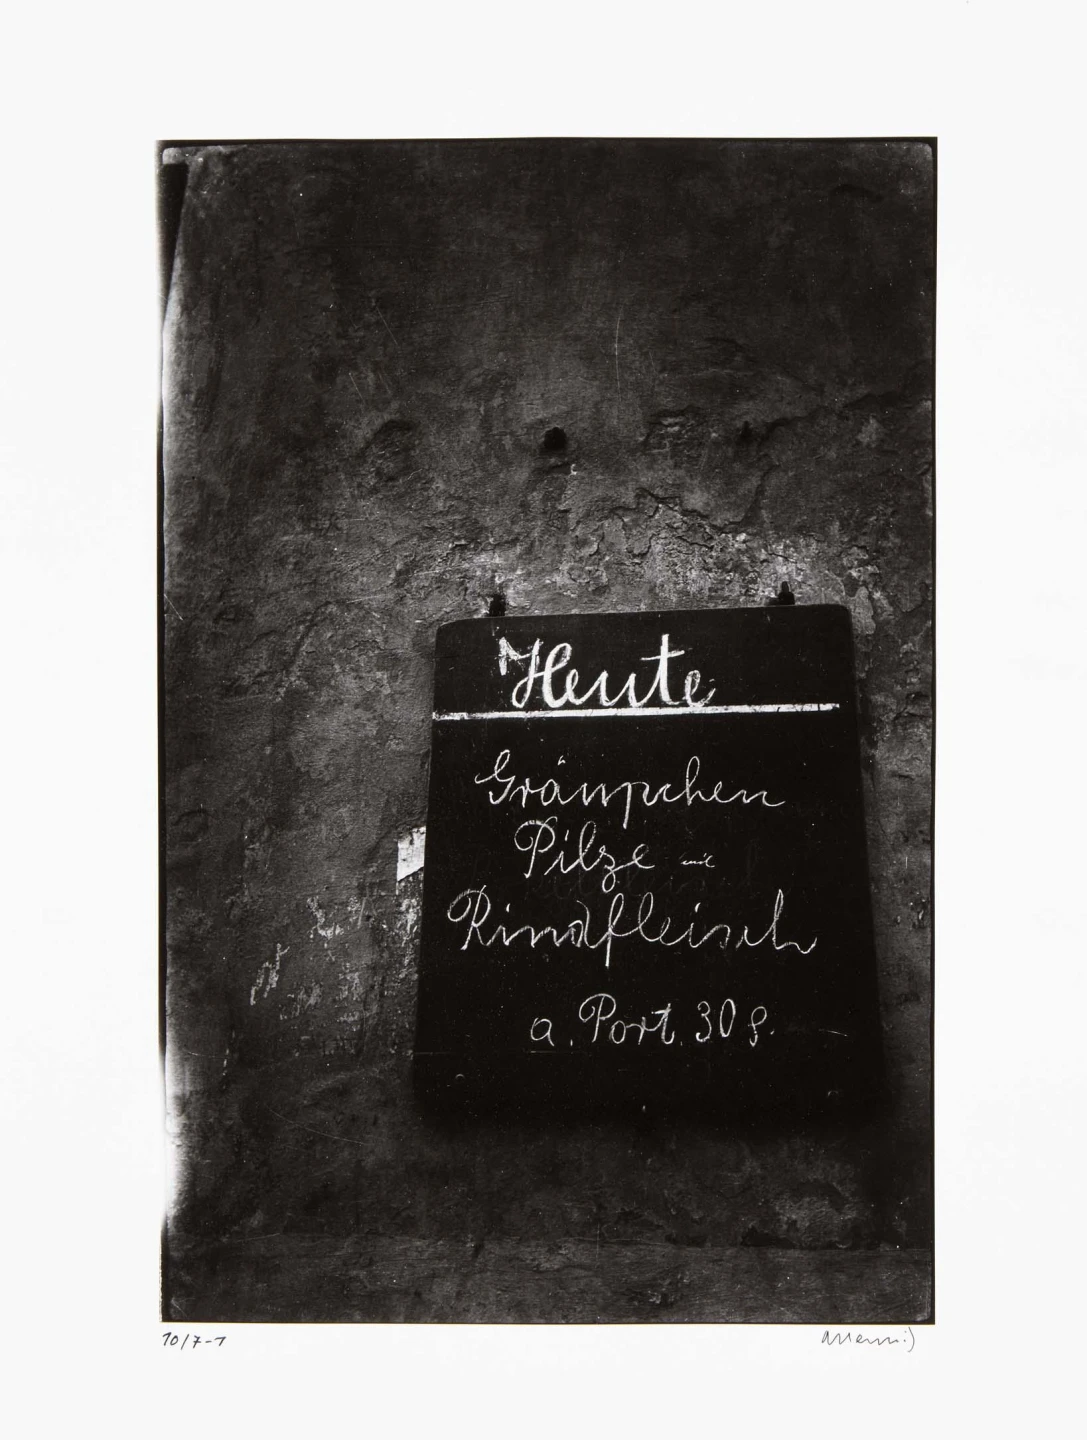 Heute
Gräupchen
Pilze mit
Rindfleisch
a. Port. 30 g.
10/7-1